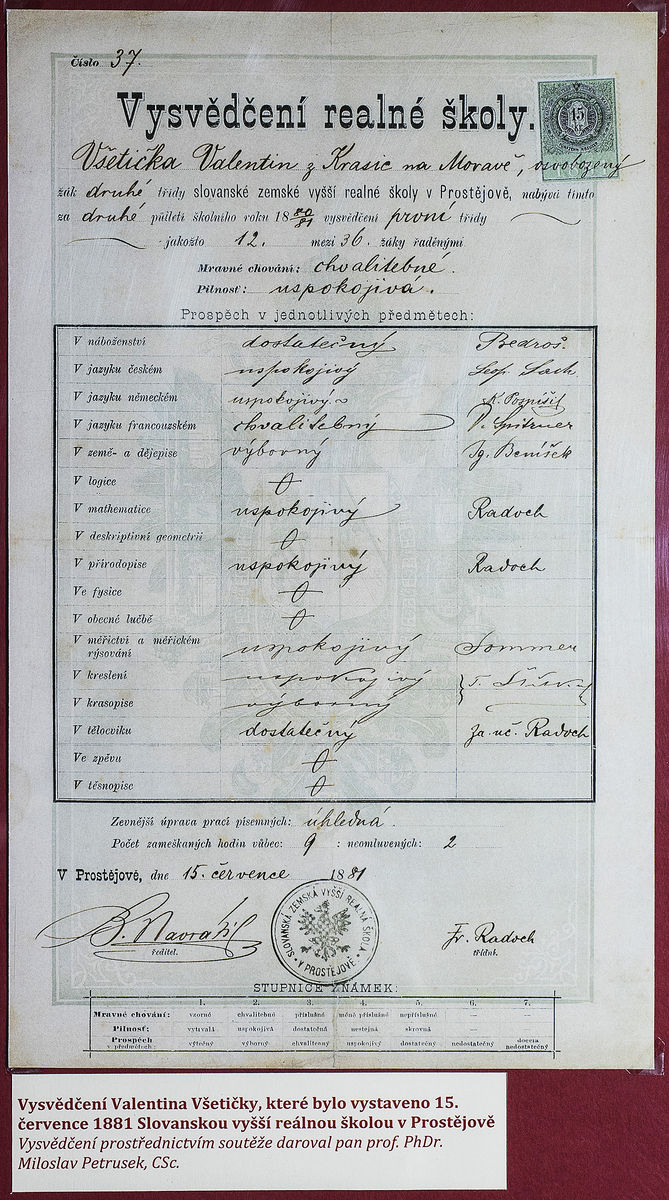 Číslo 37.
Vysvědčení realné školy.
15
Všetička Valentin z Krasic na Moravě, osvobozený
žák druhé třídy slovanské zemské vyšší realné školy v Prostějově, nabývá tímto
za druhé půlletí školního roku 18 80/81 vysvědčení první třídy
jakožto 12. mezi 36. žáky řaděnými
Mravné chování: chvalitebné.
Pilnosť: uspokojivá.
Prospěch v jednotlivých předmětech:
V náboženství dostatečný Bedroš.
V jazyku českém uspokojivý
V jazyku německém uspokojivý K. Pospíšil
V jazyku francouzském chvalitebný P. Spitzner
V země- a dějepise výborný Ig. Beníšek
V logice 0
V mathematice uspokojivý Radoch
V deskriptivní geometrii 0
V přírodopise uspokojivý Radoch
Ve fysice 0
V obecné lučbě 0
V měřictví a měřickém
rýsování uspokojivý Sommer
V kreslení uspokojivý
V krasopise výborný
V tělocviku dostatečný za uč. Radoch
Ve zpěvu 0
V těsnopise 0
Zevnější úprava prací písemných: úhledná.
Počet zameškaných hodin vůbec: 9 : neomluvených: 2
V Prostějově, dne 15. července 1881
SLOVANSKÁ ZEMSKÁ VYŠŠÍ REALNÁ ŠKOLA
V PROSTĚJOVĚ
Navrátil Fr. Radoch
ředitel. třídní.
STUPNICE ZNÁMEK:
1. 2. 3. 4. 5. 6. 7.
Mravné chování: vzorné chvalitebné příslušné méně příslušné nepříslušné — —
Pilnosť: vytrvalá uspokojivá dostatečná nestejná skrovná — —
Prospěch
v předmětech: výtečný výborný chvalitebný uspokojivý dostatečný nedostatečný docela
nedostatečný
Vysvědčení Valentina Všetičky, které bylo vystaveno 15.
července 1881 Slovanskou vyšší reálnou školou v Prostějově
Vysvědčení prostřednictvím soutěže daroval pan prof. PhDr.
Miloslav Petrusek, CSc.